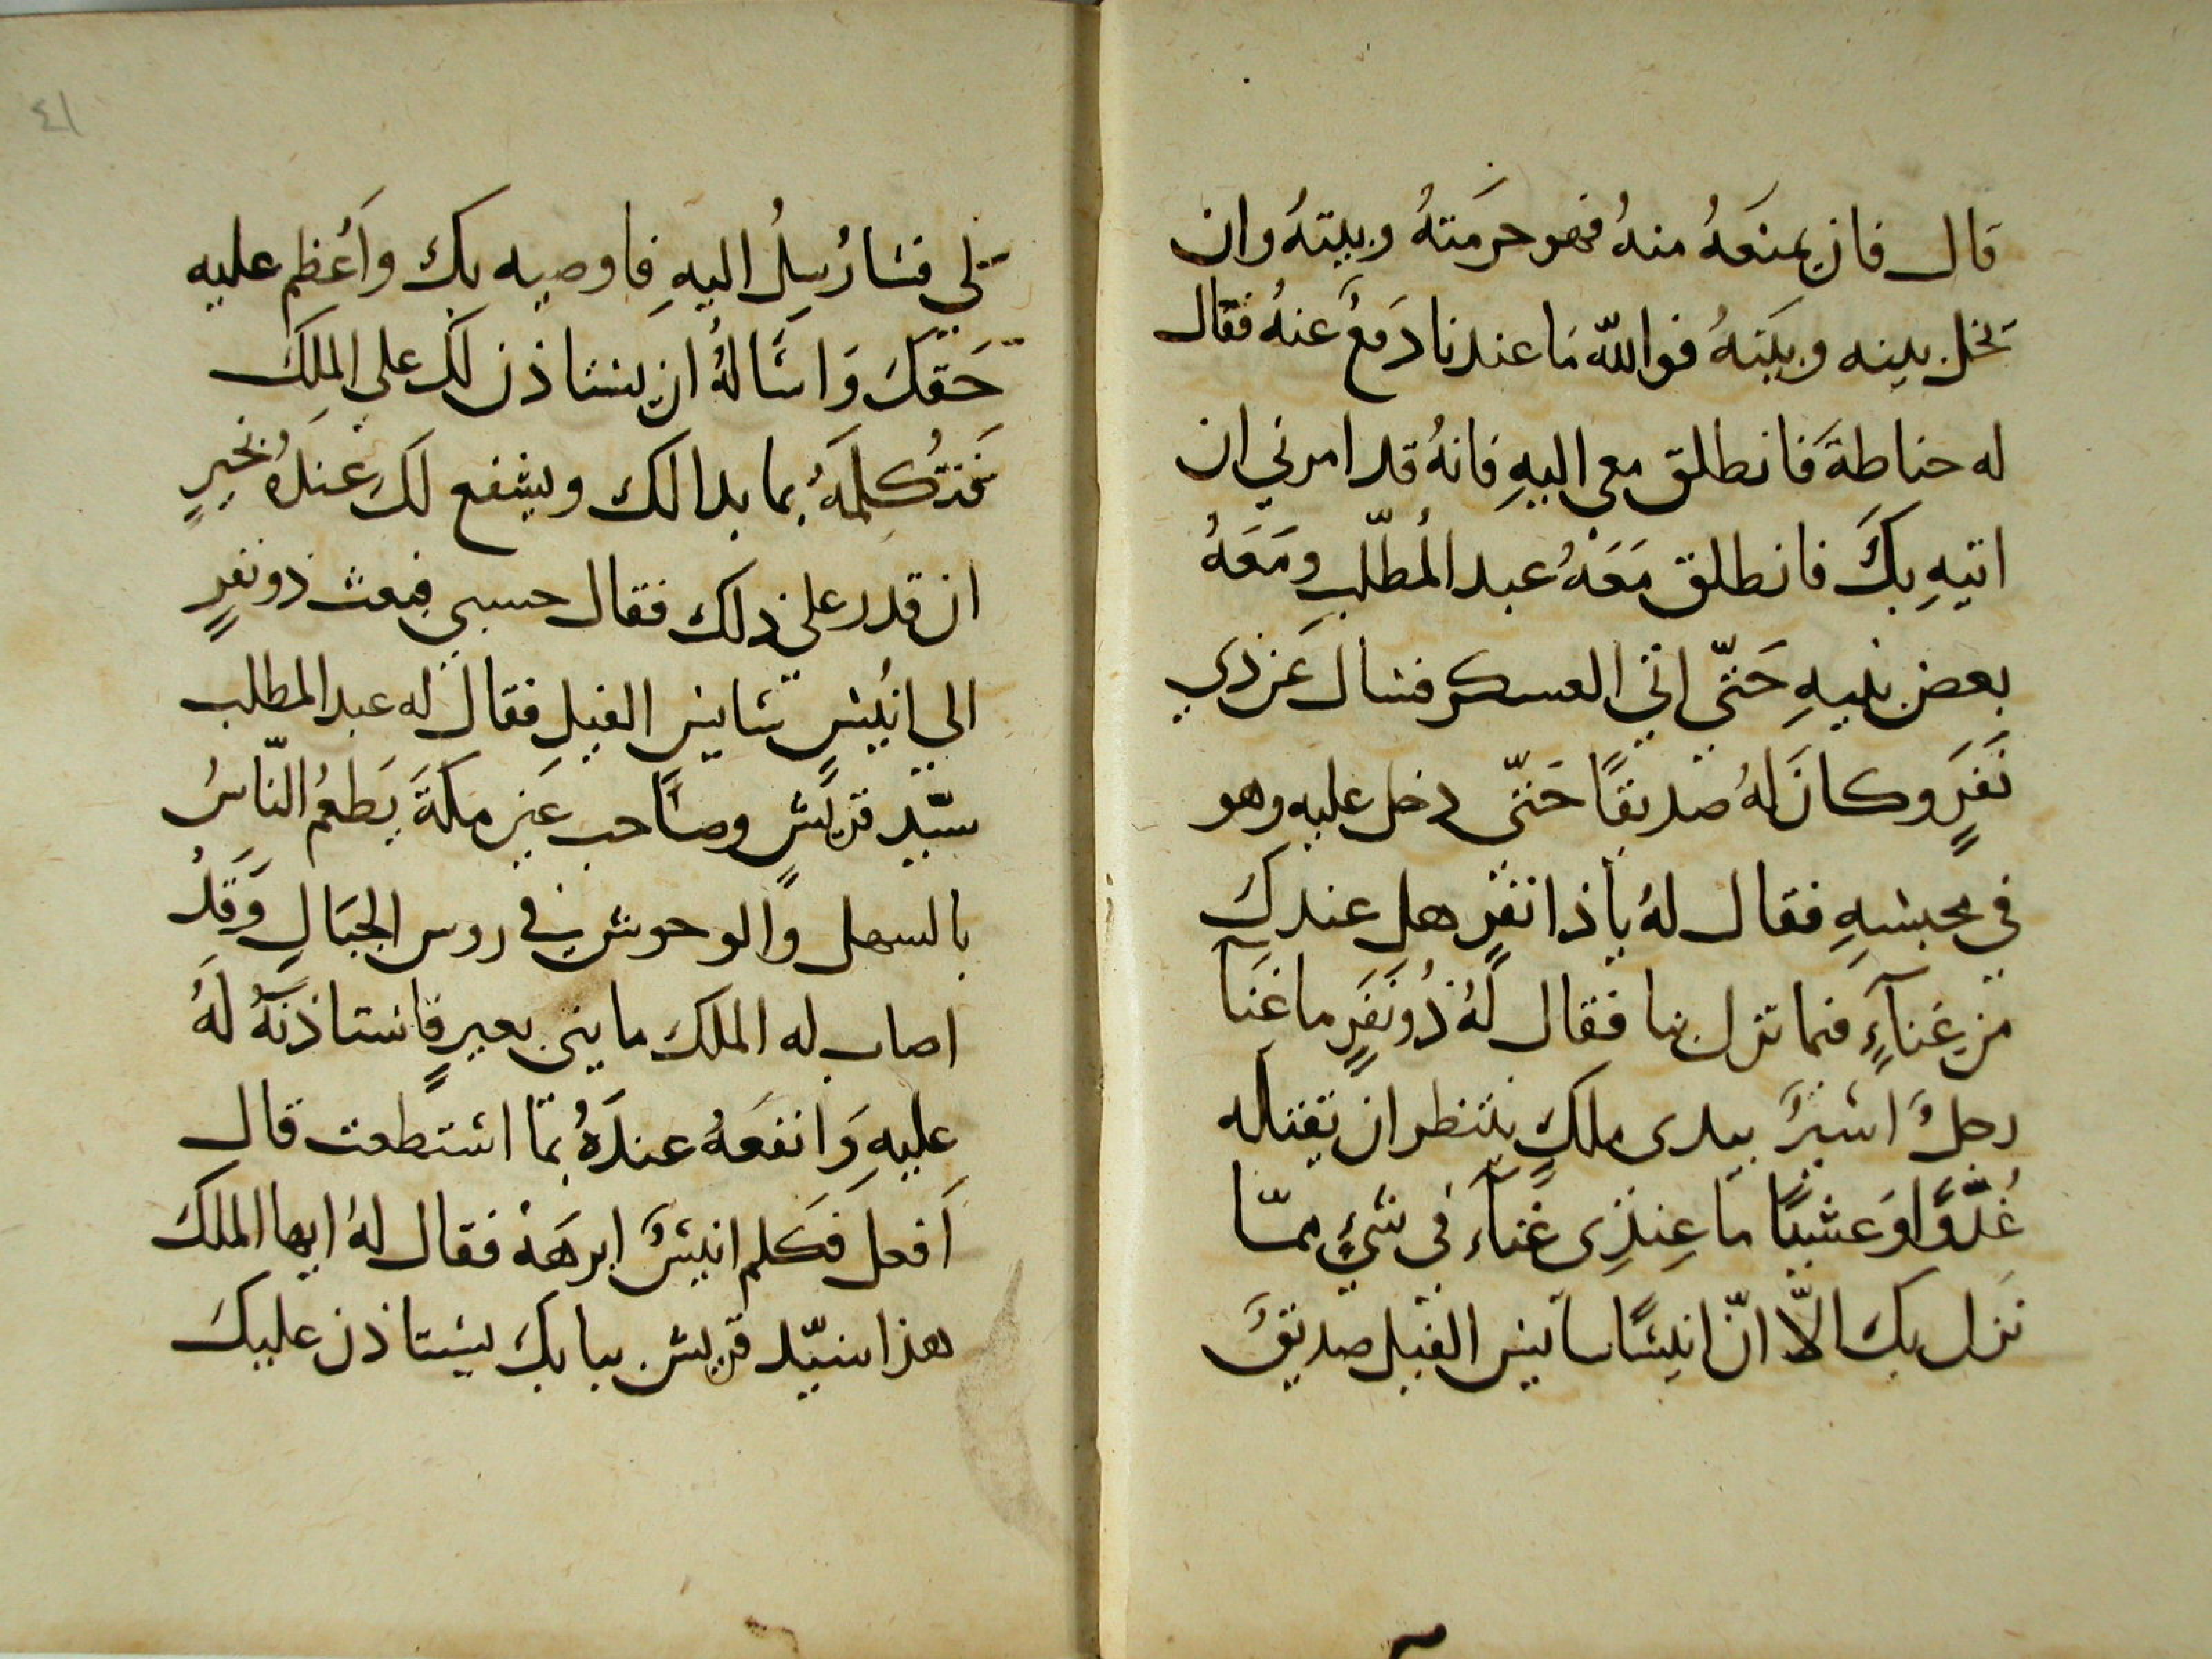 قال فان يمنعهُ منهُ فهو حرمتهُ وبيتهُ وان
يخل بينه وبينهُ فوالله ما عندنا دفعٌ عنهُ فقال
له حناطة فانطلق معي اليهِ فانهُ قد امرني ان
اتيهِ بكَ فانطلق مَعَهُ عبد المُطّلب ومَعَهُ
بعض بنيهِ حَتّى اتي العسكر فسال عَن ذي
نَفَرٍ وكانَ لهُ صديقًا حَتّى دخل عليه وهو
في محبسهِ فقال لهُ يا ذا نفرٍ هل عندكَ
من غنآءٍ فيما نزل بنا فقال لهُ ذُو نَفَرٍ ما غنَآ
رجلٌ اسيرٌ بيدى ملكٍ ينتظر ان يقتاله
غُدُّوًا اوَ عشيًّا ما عِندِى غنآء في شيءٍ ممّا
نزل بكَ الاّ انّ انيسًا سايس الفيل صديقٌ
لي فسارُسِلُ اليهِ فاوصيه بك واَعُظِم عليه
حَقكَ وَاسَالهُ ان يستاذن لك على الملِكَ
فَتُكلمَهُ بما بدا لك ويشفع لكَ عندهُ بخيرٍ
ان قدر على ذلك فقال حسبي فبعث ذو نفرٍ
الي انُيسٍ سايس الفيلِ فقال له عبد المطلب
سيّد قريشٍ وصَاحب عَير مكةَ يَطعمُ النّاسُ
بالسهل والوحوش في روس الجبَالِ وَقَدْ
اصاب له الملك مايتى بعيرٍ فاستاذنَهُ لَهُ
عليهِ وَانفعَهُ عندَهُ بمَا استطعت قال
اَفعل فكلم انيسٌ ابرهَةْ فقال لهُ ايها الملكَ
هذا سيّد قريش ببابكَ يستاذن عليكَ
٤١